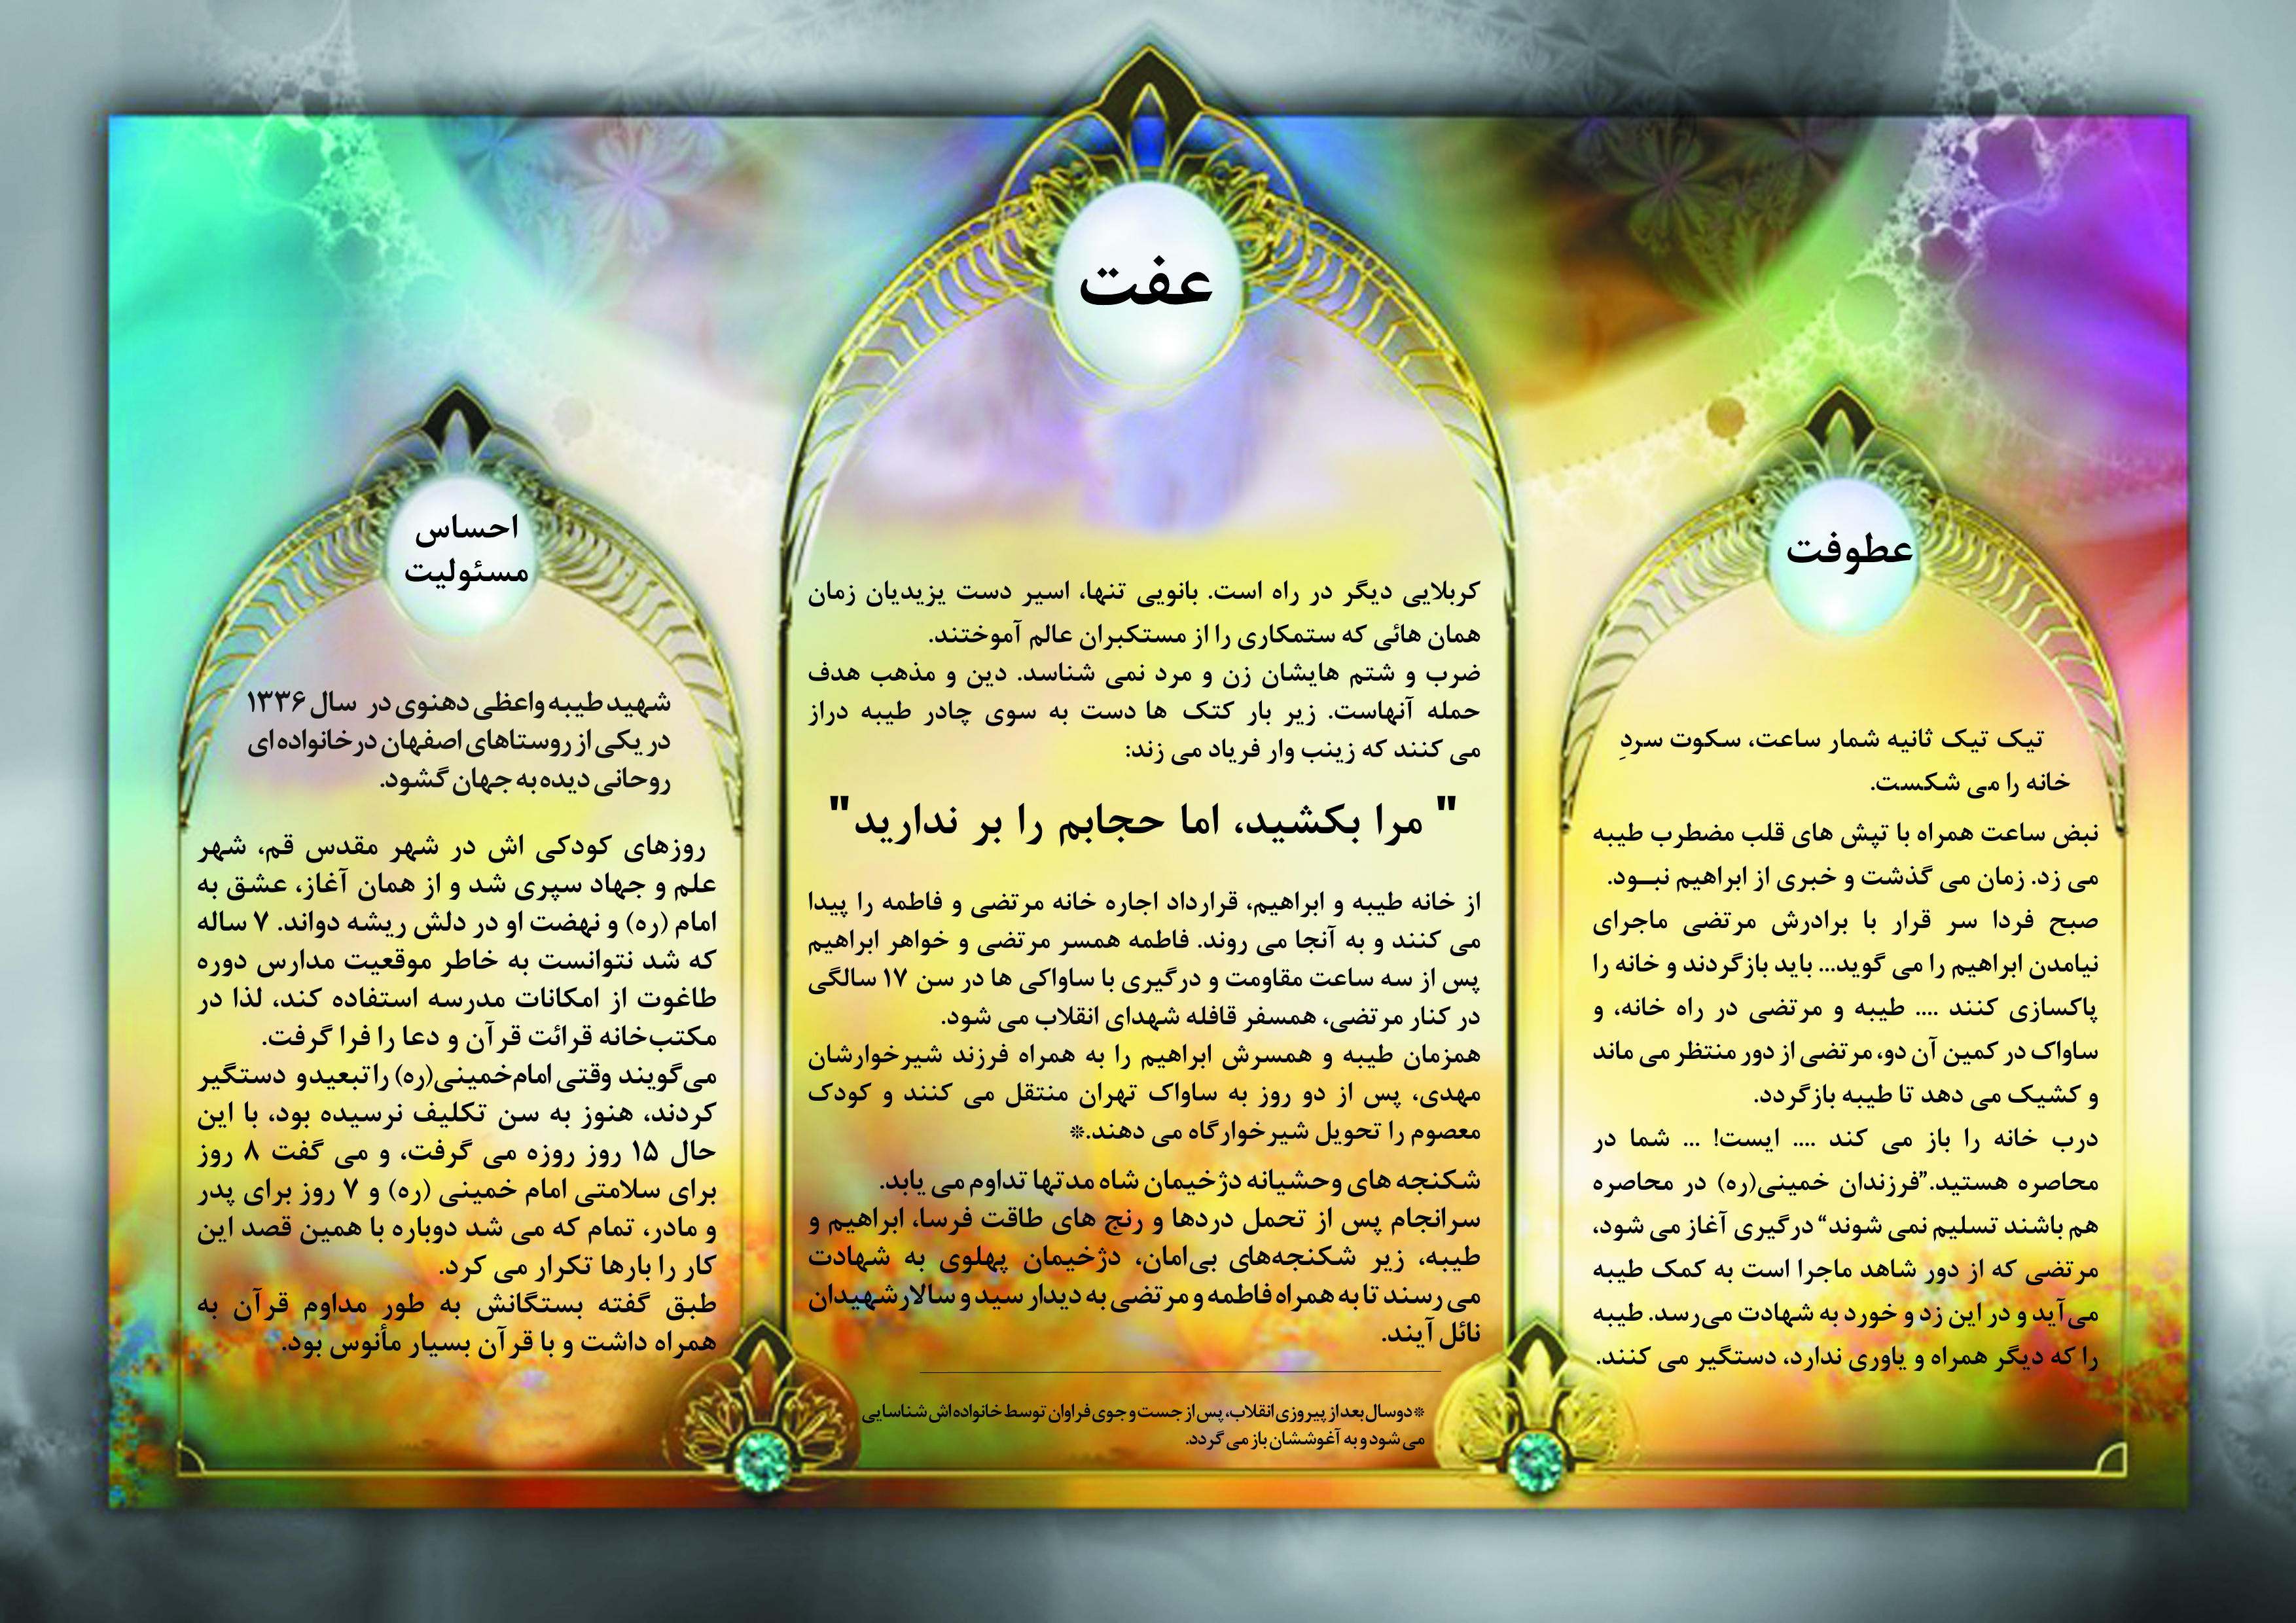 عطوفت
تیک تیک ثانیه شمار ساعت، سکوت سردِ
خانه را می شکست.
نبض ساعت همراه با تپش های قلب مضطرب طیبه
می زد. زمان می گذشت و خبری از ابراهیم نبــود.
صبح فردا سر قرار با برادرش مرتضی ماجرای
نیامدن ابراهیم را می گوید... باید بازگردند و خانه را
پاکسازی کنند .... طیبه و مرتضی در راه خانه، و
ساواک در کمین آن دو، مرتضی از دور منتظر می ماند
و کشیک می دهد تا طیبه بازگردد.
درب خانه را باز می کند .... ایست! ... شما در
محاصره هستید.”فرزندان خمینی(ره) در محاصره
هم باشند تسلیم نمی شوند“ درگیری آغاز می شود،
مرتضی که از دور شاهد ماجرا است به کمک طیبه
می‌آید و در این زد و خورد به شهادت می‌رسد. طیبه
را که دیگر همراه و یاوری ندارد، دستگیر می کنند.
عفت
کربلایی دیگر در راه است. بانویی تنها، اسیر دست یزیدیان زمان
همان هائی که ستمکاری را از مستکبران عالم آموختند.
ضرب و شتم هایشان زن و مرد نمی شناسد. دین و مذهب هدف
حمله آنهاست. زیر بار کتک ها دست به سوی چادر طیبه دراز
می کنند که زینب وار فریاد می زند:
" مرا بکشید، اما حجابم را بر ندارید"
از خانه طیبه و ابراهیم، قرارداد اجاره خانه مرتضی و فاطمه را پیدا
می کنند و به آنجا می روند. فاطمه همسر مرتضی و خواهر ابراهیم
پس از سه ساعت مقاومت و درگیری با ساواکی ها در سن ۱۷ سالگی
در کنار مرتضی، همسفر قافله شهدای انقلاب می شود.
همزمان طیبه و همسرش ابراهیم را به همراه فرزند شیرخوارشان
مهدی، پس از دو روز به ساواک تهران منتقل می کنند و کودک
معصوم را تحویل شیرخوارگاه می دهند.*
شکنجه های وحشیانه دژخیمان شاه مدتها تداوم می یابد.
سرانجام پس از تحمل دردها و رنج های طاقت فرسا، ابراهیم و
طیبه، زیر شکنجه‌های بی‌امان، دژخیمان پهلوی به شهادت
می رسند تا به همراه فاطمه و مرتضی به دیدار سید و سالارشهیدان
نائل آیند.
*دوسال بعد از پیروزی انقلاب، پس از جست و جوی فراوان توسط خانواده اش شناسایی
می شود و به آغوششان باز می گردد.
احساس
مسئولیت
شهید طیبه واعظی دهنوی در سال ۱۳۳۶
در یکی از روستاهای اصفهان درخانواده ای
روحانی دیده به جهان گشود.
روزهای کودکی اش در شهر مقدس قم، شهر
علم و جهاد سپری شد و از همان آغاز، عشق به
امام (ره) و نهضت او در دلش ریشه دواند. ۷ ساله
که شد نتوانست به خاطر موقعیت مدارس دوره
طاغوت از امکانات مدرسه استفاده کند، لذا در
مکتب‌خانه قرائت قرآن و دعا را فرا گرفت.
می‌گویند وقتی امام‌خمینی(ره) را تبعیدو دستگیر
کردند، هنوز به سن تکلیف نرسیده بود، با این
حال ۱۵ روز روزه می گرفت، و می گفت ۸ روز
برای سلامتی امام خمینی (ره) و ۷ روز برای پدر
و مادر، تمام که می شد دوباره با همین قصد این
کار را بارها تکرار می کرد.
طبق گفته بستگانش به طور مداوم قرآن به
همراه داشت و با قرآن بسیار مأنوس بود.